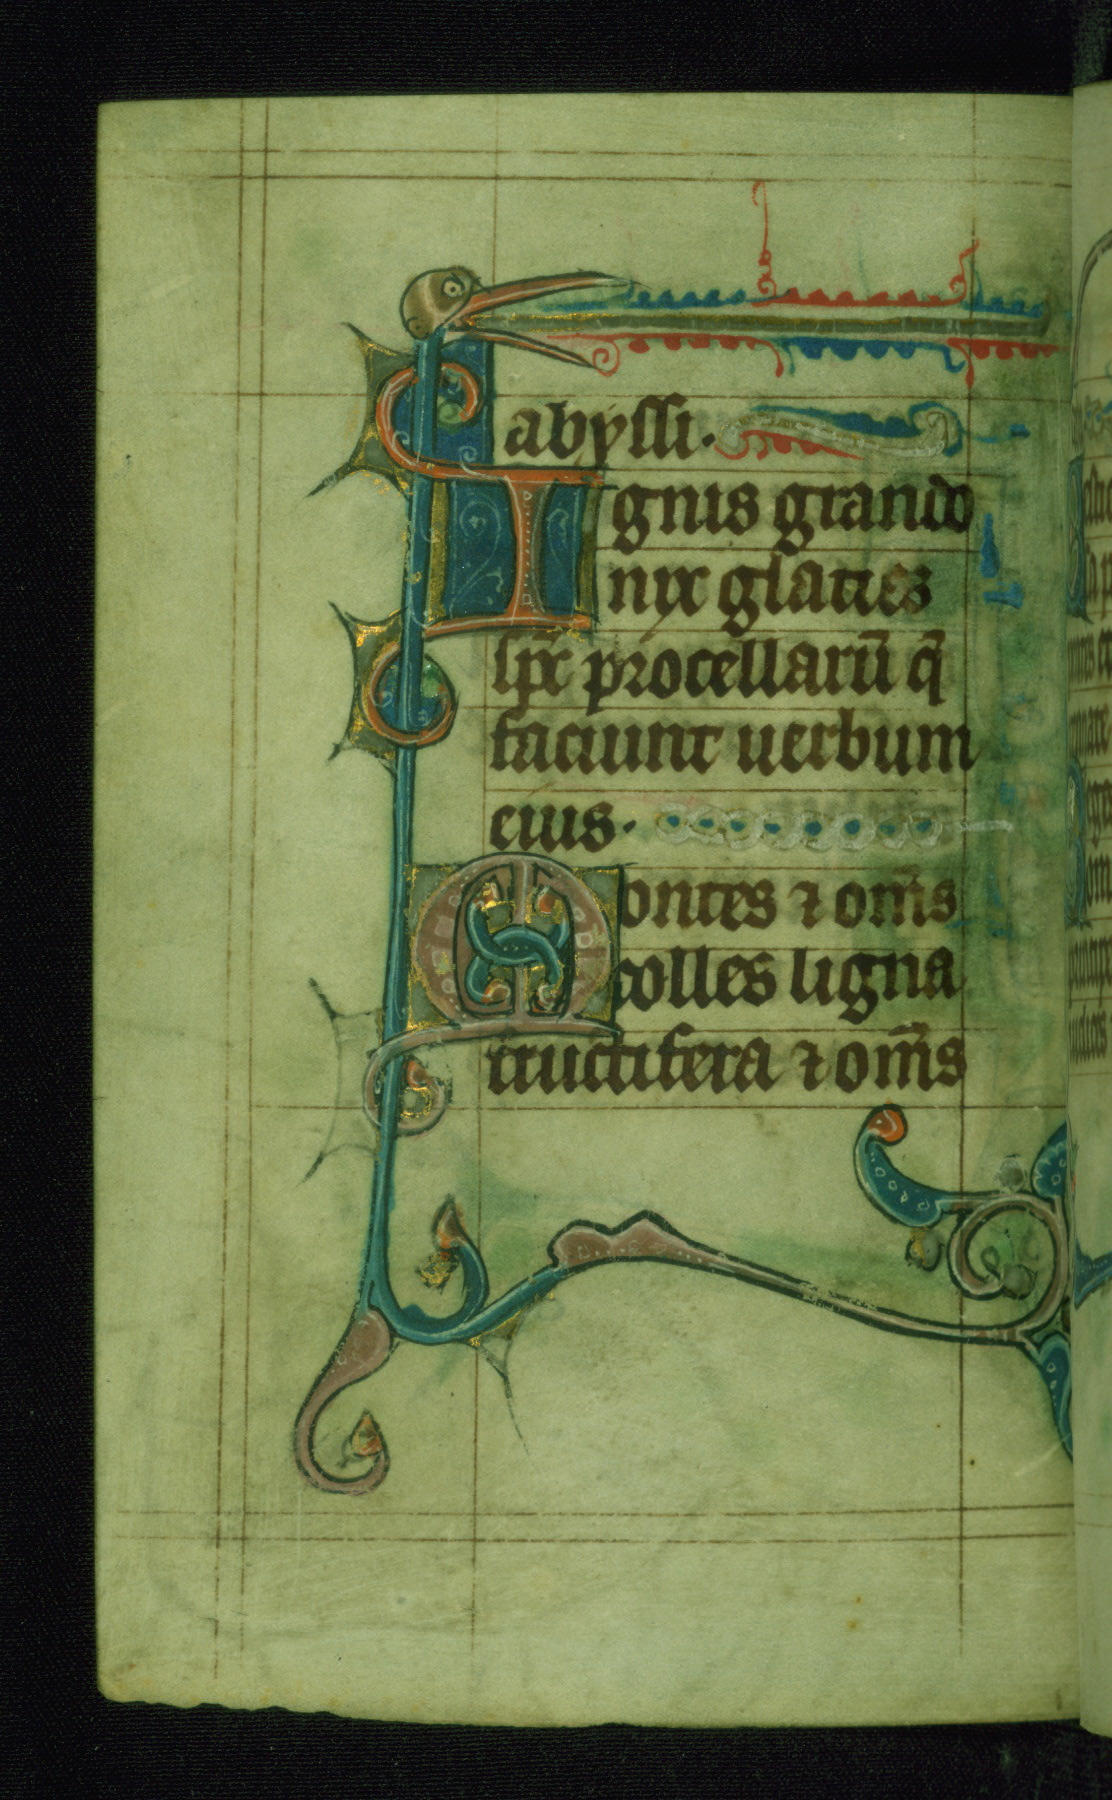 abyssi.
Ignis grando
nix glacies
sp̄c procellarū q̄
faciunt uerbum
eius.
Montes ⁊ om̄s
colles ligna
fructifera ⁊ om̄s